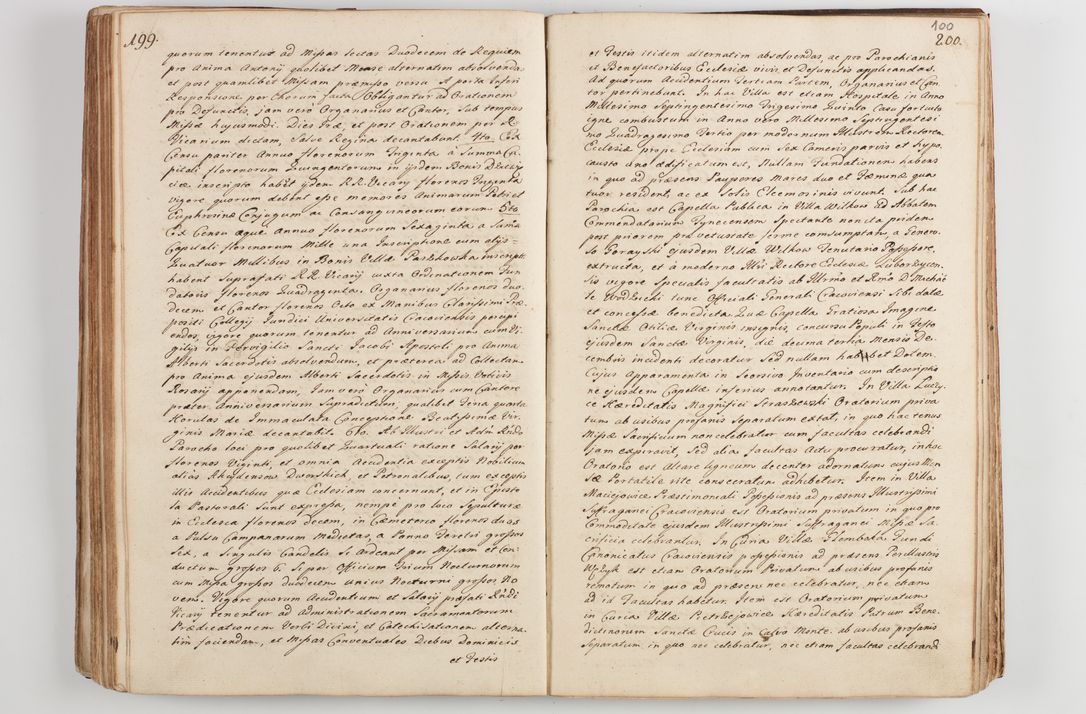 199.
quorum tenentur ad Missas lectas Duodecem de Requiem
pro Anima Antonÿ quolibet Mense alternatim absolvendas
et post quamlibet Missam præmisso versu A porta Inferi
Responsione per Chorum facta Obligantur ad Orationem
pro Defunctis, jam vero Organarius et Cantor, Sub tempus
Missæ hujusmodi. Dies Iræ, et post Orationem per R.
Vicarium dictam, Salve Regina decantabunt. 4to. Ex
Censu pariter Annuo florenorum Triginta à Summa Ca
pitali florenorum Quingentorum in ijsdem Bonis
inscripto habët ijdem R.R. Vicarÿ florenos Triginta
vigore quorum debent esse memores Animarum Petri et
Euphrosinæ Conjugum ac Consanguineorum eorum 5to.
Ex Censu æque Annuo florenorum Sexaginta a Suma
Capitali florenorum Mille una Inscriptione cum alÿs
Quatuor Millibus in Bonis Villæ inscripti
habent Suprafati R.R. Vicarÿ iuxta Ordinationem Fun
datoris florenos Quadraginta. Organarius florenos duo
decem et Cantor florenos Octo ex Manibus Clarissimi Præ
positi Collegÿ Iuridici Universitatis Cracoviensis percipi
endos, vigore quorum tenentur ad Anniversarium cum Vi
gilÿs in Pervigilio Sancti Jacobi Apostoli pro Anima
Alberti Sacerdotis absolvendum, et præterea ad Collectam
pro Anima ejusdem Alberti Sacerdotis in Missis Votivis
Rosarÿ apponendam, Iam vero Organarius cum Cantore
præter Anniversarium Supradictum, qualibet Feria quarta
Horulas de Immaculata Conceptione Beatissimæ Vir
ginis Mariæ decantabit. 6to. Ab Illustri et Adm Rndo
Parocho loci pro quolibet Quartuali ratione Salarÿ per
florenos Viginti, et omnia Accidentia exceptis Nobilium
alias Dworskich, et Petronalibus, tum exceptis
illis Accidentibus quæ Ecclesiam concernunt, et in Episto
la Pastorali Sunt expressa, nempe pro loco Sepulturæ
in Ecclesia florenos decem, in Cæmeterio florenos duos
a Pulsu Campanarum medietas, a Panno Feretri grossos
Sex, a Singulis Candelis Si ardeant per Missam et Con
ductum grossos 6. Si per Officium Trium Nocturnorum
cum Missa grossos duodecem unius Nocturni grossos No
vem. Vigore quorum Accidentium et Salarÿ præfati Rndi
Vicarÿ tenentur ad Administrationem Sacramentorum
Prædicationem Verbi Divini, et Catechisationem alterna
tim faciendam, et Missas Conventuales Diebus Dominicis
et Festis
100
200.
et Festis itidem alternatim absolvendas, ac pro Parochianis
et Benefactoribus Ecclesiæ vivis et Defunctis applicandas.
Ad quorum Accidentium Tertiam Partem, Organarius et Can
tor pertinebunt. In hac Villa est etiam Hospitale in Anno
Millesimo Septingentesimo Trigesimo Quinto Casu fortuito
igne combustum in Anno vero Millesimo Septingentesi
mo Quadragesimo Tertio per modernum Illustrem Rectorem
Ecclesiæ prope Ecclesiam cum Sex Cameris parvis et hypo
causto uno ædificatum est, Nullam Fundationem habens
in quo ad præsens Pauperes Mares duo et Fæminæ qua
tuor resident, ac ex Solis Eleemosinis vivunt. Sub hac
Parochia est Capella Publica in Villa Wilkow ad Abbatem
Commendatarium Tynecensem Spectante non ita pridem
post priorem præ vetustate ferme comsumptam, a Genero
so Forayski ejusdem Villæ Wilkow Tenutario Possessore,
extructa, et à moderno Illri Rectore Ecclesiæ
sis vigore Specialis facultatis ab Illrmo et Rmo D. Michaé
le Wodzicki tunc Officiali Generali Cracoviensi Sibi datæ
et concessæ benedicta. Quæ Capella Gratiosa Imagine
Sanctæ Otiliæ Virginis insignis, concursu Populi in Festo
ejusdem Sanctæ Virginis, die decima tertia Mensis De
cembris incidenti decoratur Sed nullam habet Dotem.
Cujus Apparamenta in Seorsivo Inventario cum descriptio
ne ejusdem Capellæ inferius annotantur. In Villa Luczy
ce Hæreditatis Magnifici Straszewski Oratorium priva
tum ab usibus profanis Separatum extat, in quo hactenus
Missæ Sacrificium non celebratur cum facultas celebrandi
jam expiravit, Sed alia facultas Actu procuratur, in hoc
Oratorio est Altare ligneum decenter adornatum cujus Men
sæ Portatile rite consecratum adhibetur. Item in Villa
Maciejowice Præstimonialis Possessionis ad præsens Illustrissimi
Suffraganei Cracoviensis est Oratorium privatum in quo pro
Commoditate ejusdem Illustrissimi Suffraganei Missæ Sa
crificia celebrantur. In Curia Villæ Glembaka Fundi
Canonicatus Cracoviensis possessionis ad præsens Perillustris
est etiam Oratorium Privatum ab usibus profanis
remotum in quo ad præsens nec celebratur, nec etiam
ad id Facultas habetur. Item est Oratorium privatum
in Curia Villæ Hæreditatis Patrum Bene
dictinorum Sanctæ Crucis in Calvo Monte. ab usibus profanis
Separatum in quo nec celebratur, nec etiam facultas celebrandi